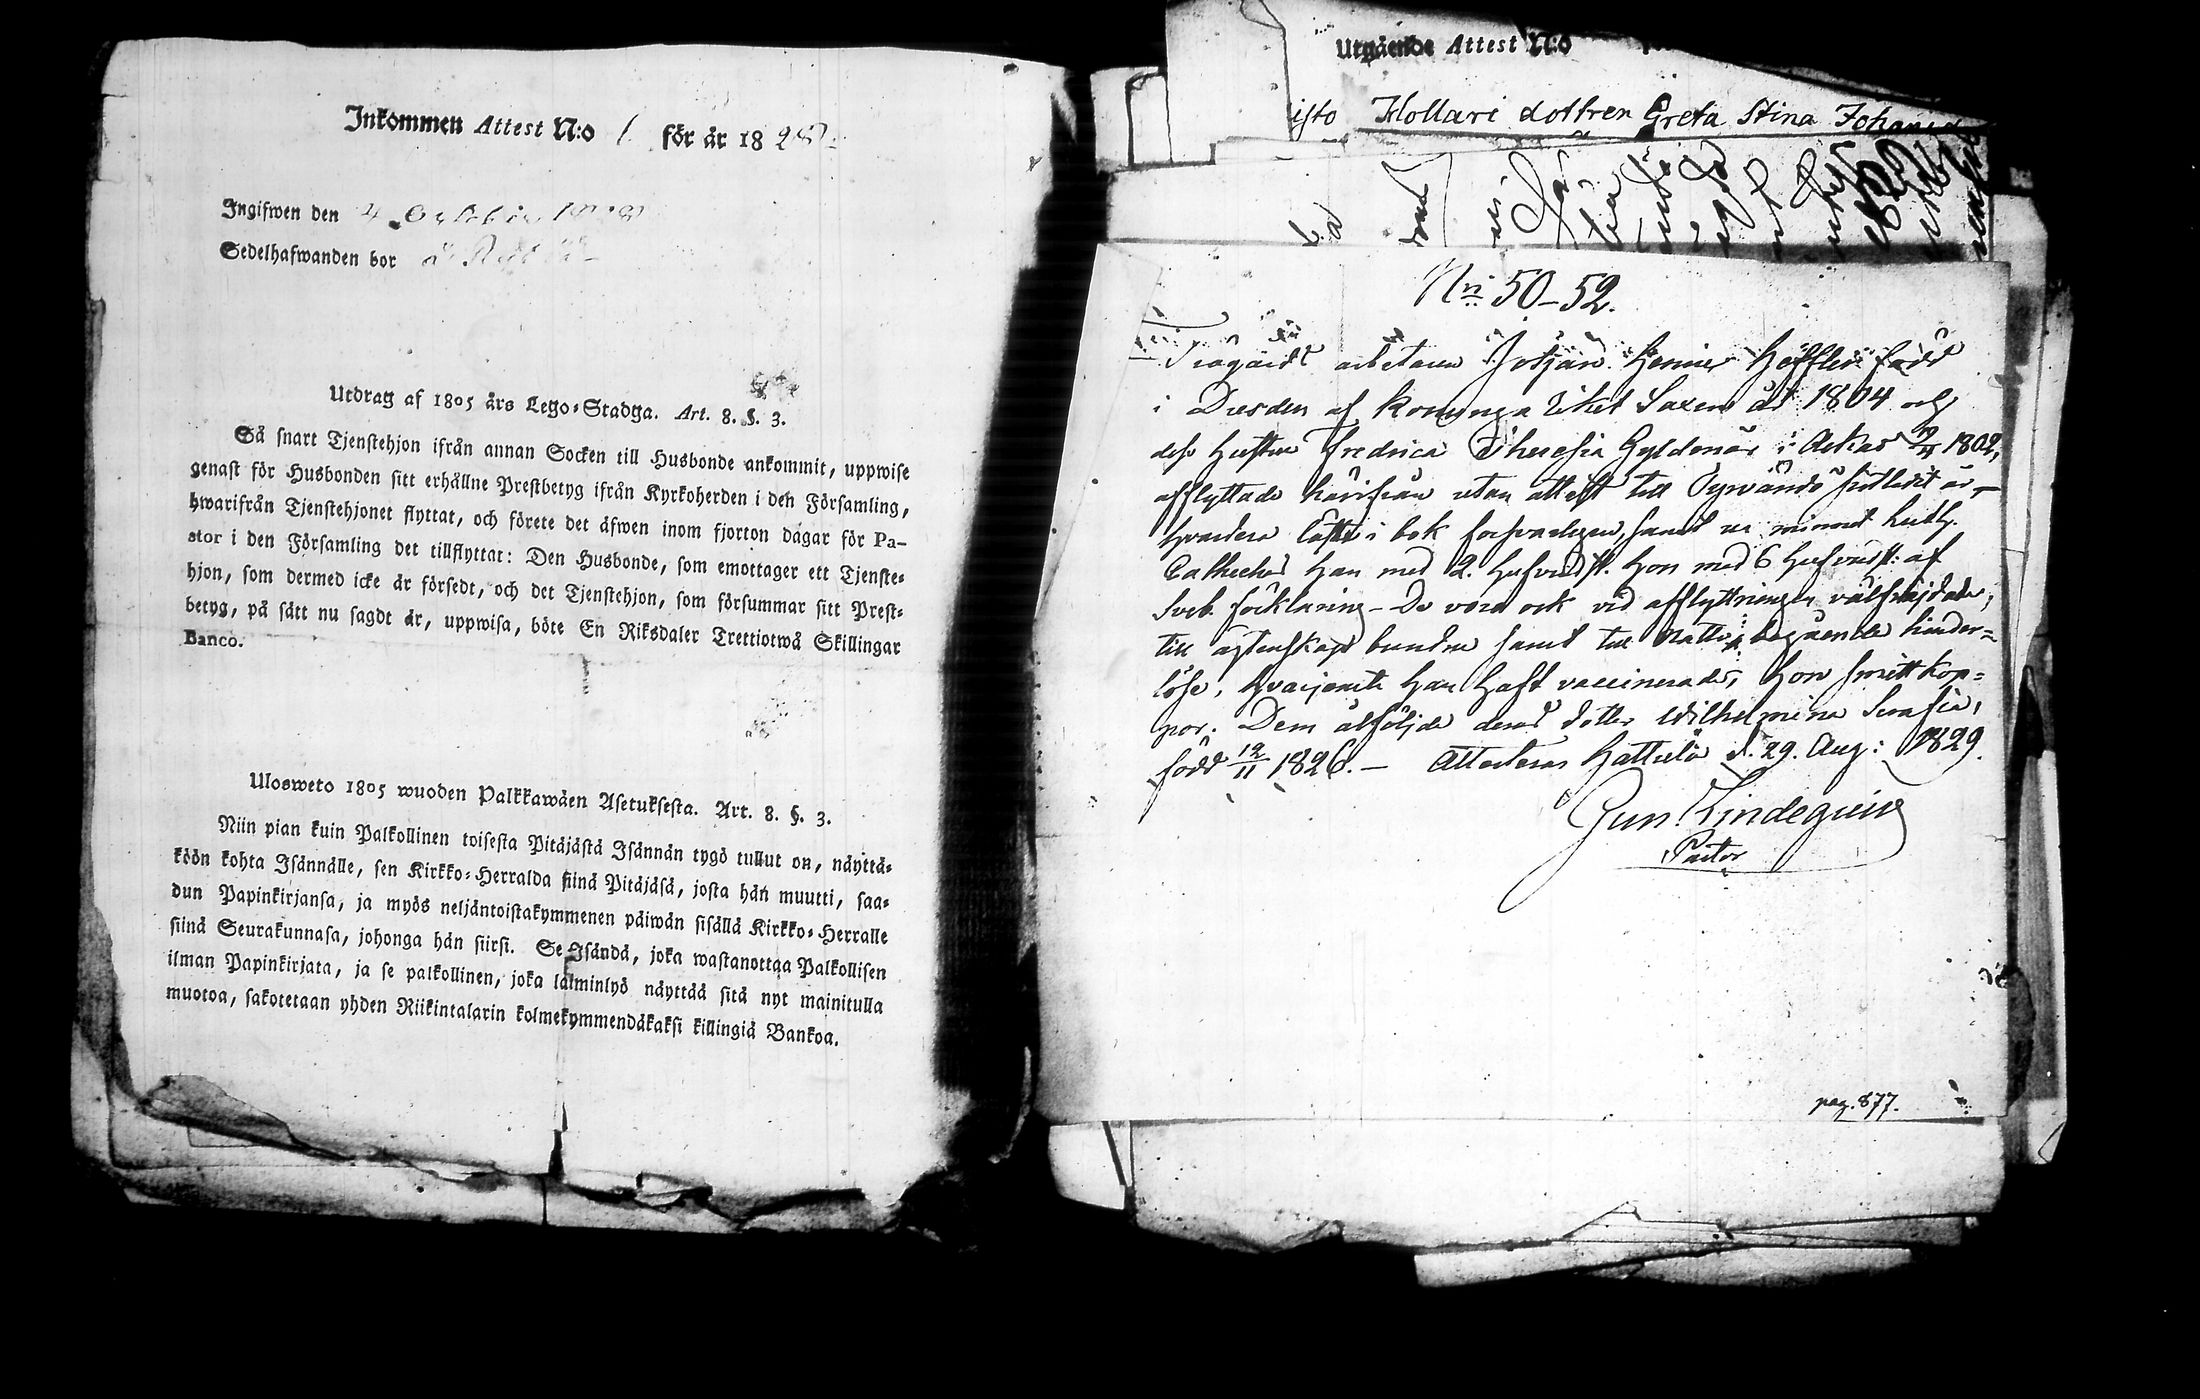 Inkommen Attest N:o 1. för år 1828.
Ingifwen den 4 Octobr 1828
Sedelhafwanden bor å
Utdrag af 1805 års Lego-Stadga. Art. 8. §. 3.
Så snart Tjenstehjon ifrån annan Socken till Husbonde ankommit, uppwise
genast för Husbonden sitt erhållne Prestbetyg ifrån Kyrkoherden i den Församling,
hwarifrån Tjenstehjonet flyttat, och förete det äfwen inom fjorton dagar för Pa-
stor i den Församling det tillflyttat: Den Husbonde, som emottager ett Tjenste-
hjon, som dermed icke är försedt, och det Tjenstehjon, som försummar sitt Prest-
betyg, på sätt nu sagdt är, uppwisa, böte En Riksdaler Trettiotwå Skillingar
Banco.
Ulosweto 1805 wuoden Palkkawäen Asetuksesta. Art. 8. §. 3.
Niin pian kuin Palkollinen toisesta Pitäjästä Isännän tygö tullut on, näyttä-
köön kohta Isännälle, sen Kirkko-Herralda siinä Pitäjäsä, josta hän muutti, saa-
dun Papinkirjansa, ja myös neljäntoistakymmenen päiwän sisällä Kirkko-Herralle
siinä Seurakunnasa, johonga hän siirsi. Se Isändä, joka wastanottaa Palkollisen
ilman Papinkirjata, ja se palkollinen, joka laiminlyö näyttää sitä nyt mainitulla
muotoa, sakotetaan yhden Riikintalarin kolmekymmendäkaksi killingiä Bankoa.
Utgående Attest N:o
isto Hollari dottren Greta Stina Johansd
Nri 50–52.
Trägårds arbetaren Henric Höffler född
i Dresden af Konunga riket Saxen år 1804 och
dess hustru Fredrica Theresia Gyldenär i Askas 19/4 1802,
afflyttade härifrån utan attest till Tyrväntö sistledit år,
hvardera läste i bok försvarligen, samt ur minnet
Catheches han med 2. hufvudst. hon med 6 hufvudst: af
Sveb. förklaring – De voro ock vid afflyttningen välfräjdade,
till ägtenskap bundne samt till Nattv. begående hinder=
löse, hvarjemte han haft vaccinerades, hon smittkop=
por. Dem åtföljde deras dotter Wilhelmina Serafia,
född 12/11 1826. – Attesteras Hattula d. 29. Aug: 1829.
Gun. Lindequist
Pastor
pag. 877.